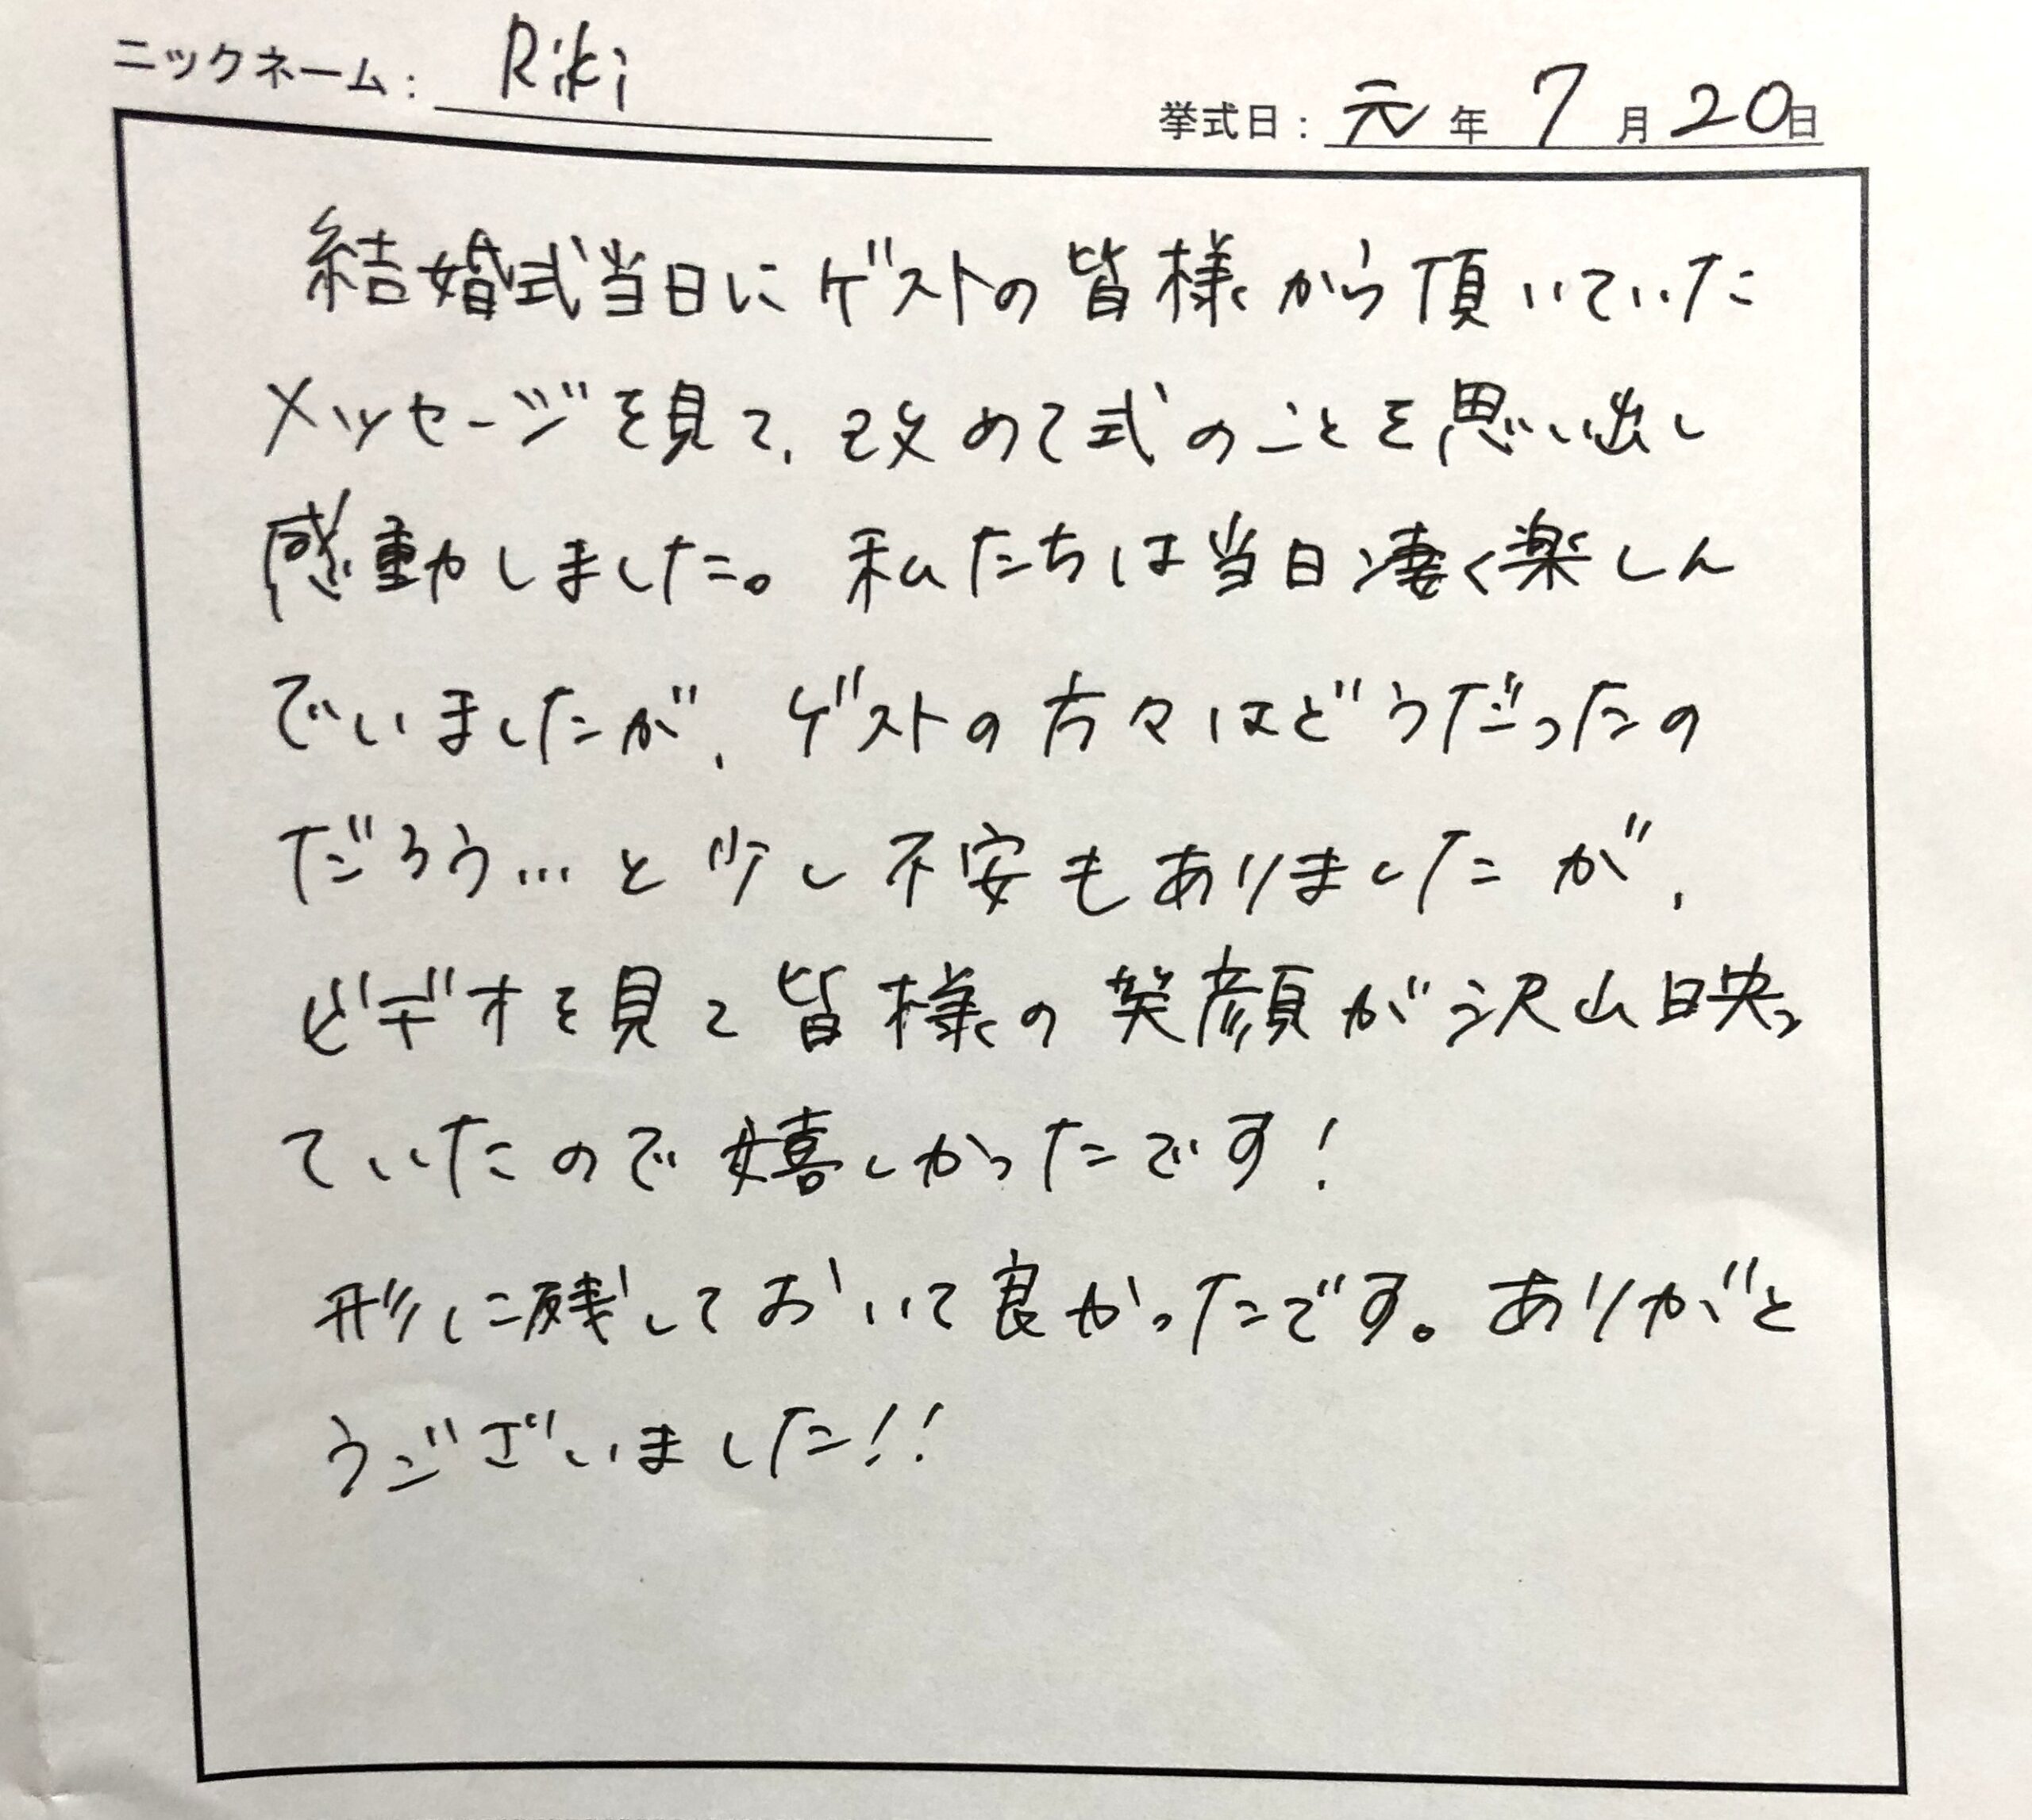 ニックネーム： Riki
挙式日： 元 年 7 月 20日
結婚式当日にゲストの皆様から頂いていた
メッセージを見て、改めて式のことを思い出し
感動しました。私たちは当日凄く楽しん
でいましたが、ゲストの方々はどうだったの
だろう…と少し不安もありましたが、
ビデオを見て皆様の笑顔が沢山映っ
ていたので嬉しかったです！
形に残しておいて良かったです。ありがと
うございました！！